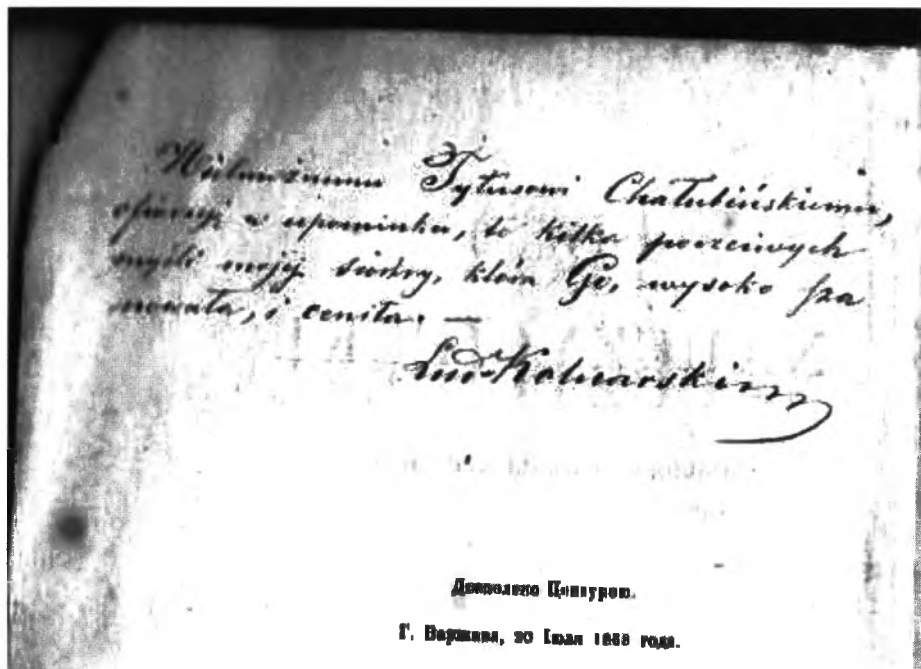 Wielmożnemu Tytusowi Chałubińskiemu,
ofiaruję w upominku, to kilka poczciwych
myśli mojéj siostry, która Go, wysoko sza
nowała, i ceniła. —
Дозволено Ценсурою.
Г. Варшава, 20 Іюля 18 года.